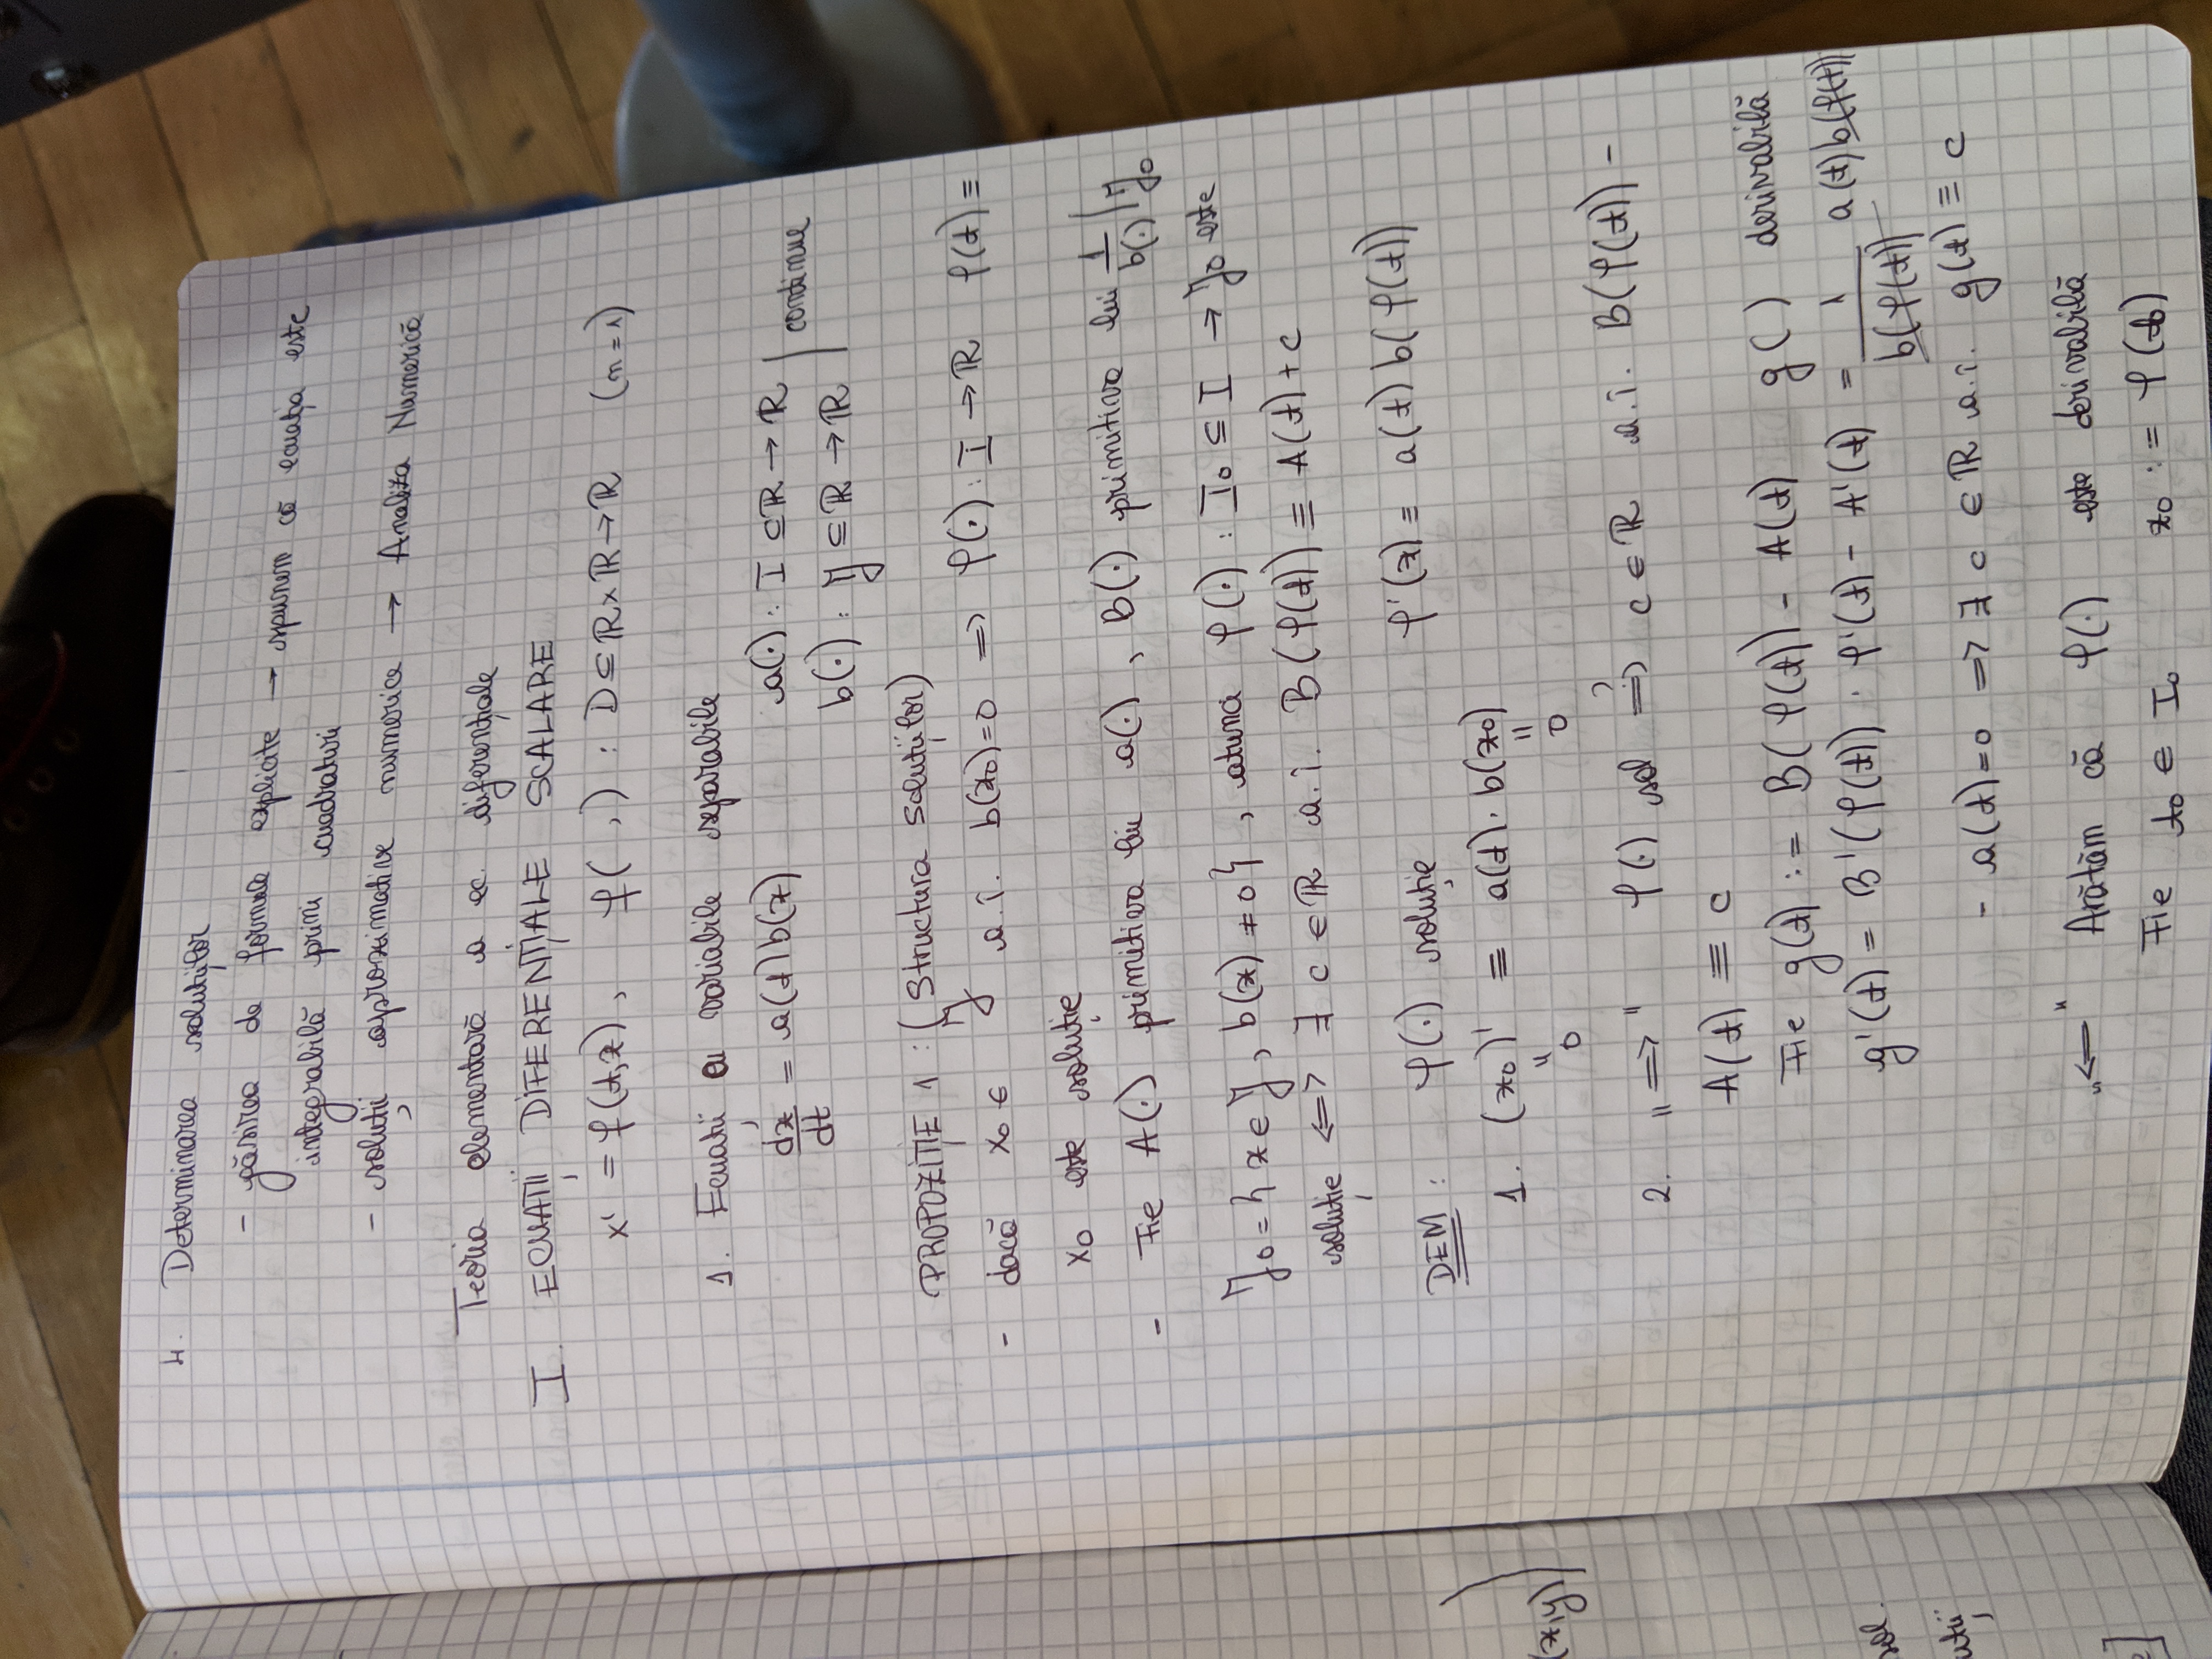 4. Determinarea soluțiilor
- găsirea de formule explicite → spunem că ecuația este
integrabilă prin cuadraturi
- soluții aproximative numerice → Analiza Numerică
Teoria elementară a ec. diferențiale
I. ECUAȚII DIFERENȚIALE SCALARE
x' = f(t,x), f( , ) : D ⊆ ℝ×ℝ → ℝ (n=1)
1. Ecuații cu variabile separabile
dx/dt = a(t) b(x) a(·) : I ⊆ ℝ → ℝ
b(·) : J ⊆ ℝ → ℝ | continue
PROPOZIȚIE 1 : (Structura soluțiilor)
- dacă x₀ ∈ J a.î. b(x₀)=0 ⇒ φ(·) : I → ℝ φ(t) ≡
x₀ este soluție
- Fie A(·) primitiva lui a(·), B(·) primitiva lui 1/b(·) | J₀
J₀ = { x ∈ J, b(x) ≠ 0 }, atunci φ(·) : I₀ ⊆ I → J₀ este
soluție ⟺ ∃ c ∈ ℝ a.î. B(φ(t)) ≡ A(t) + c
DEM : φ(·) soluție φ'(x) ≡ a(t) b(φ(t))
1. (x₀)' ≡ a(t) · b(x₀)
" "
0 0
2. „⇒" φ(·) sol ⇒? c ∈ ℝ a.î. B(φ(t)) -
A(t) ≡ c
Fie g(t) := B(φ(t)) - A(t) g( ) derivabilă
g'(t) = B'(φ(t)) · φ'(t) - A'(t) = 1/b(φ(t)) a(t) b(φ(t))
- a(t) = 0 ⇒ ∃ c ∈ ℝ a.î. g(t) ≡ c
„⇐" Arătăm că φ(·) este derivabilă
Fie t₀ ∈ I₀ x₀ := φ(t₀)
(x,y)
sol.